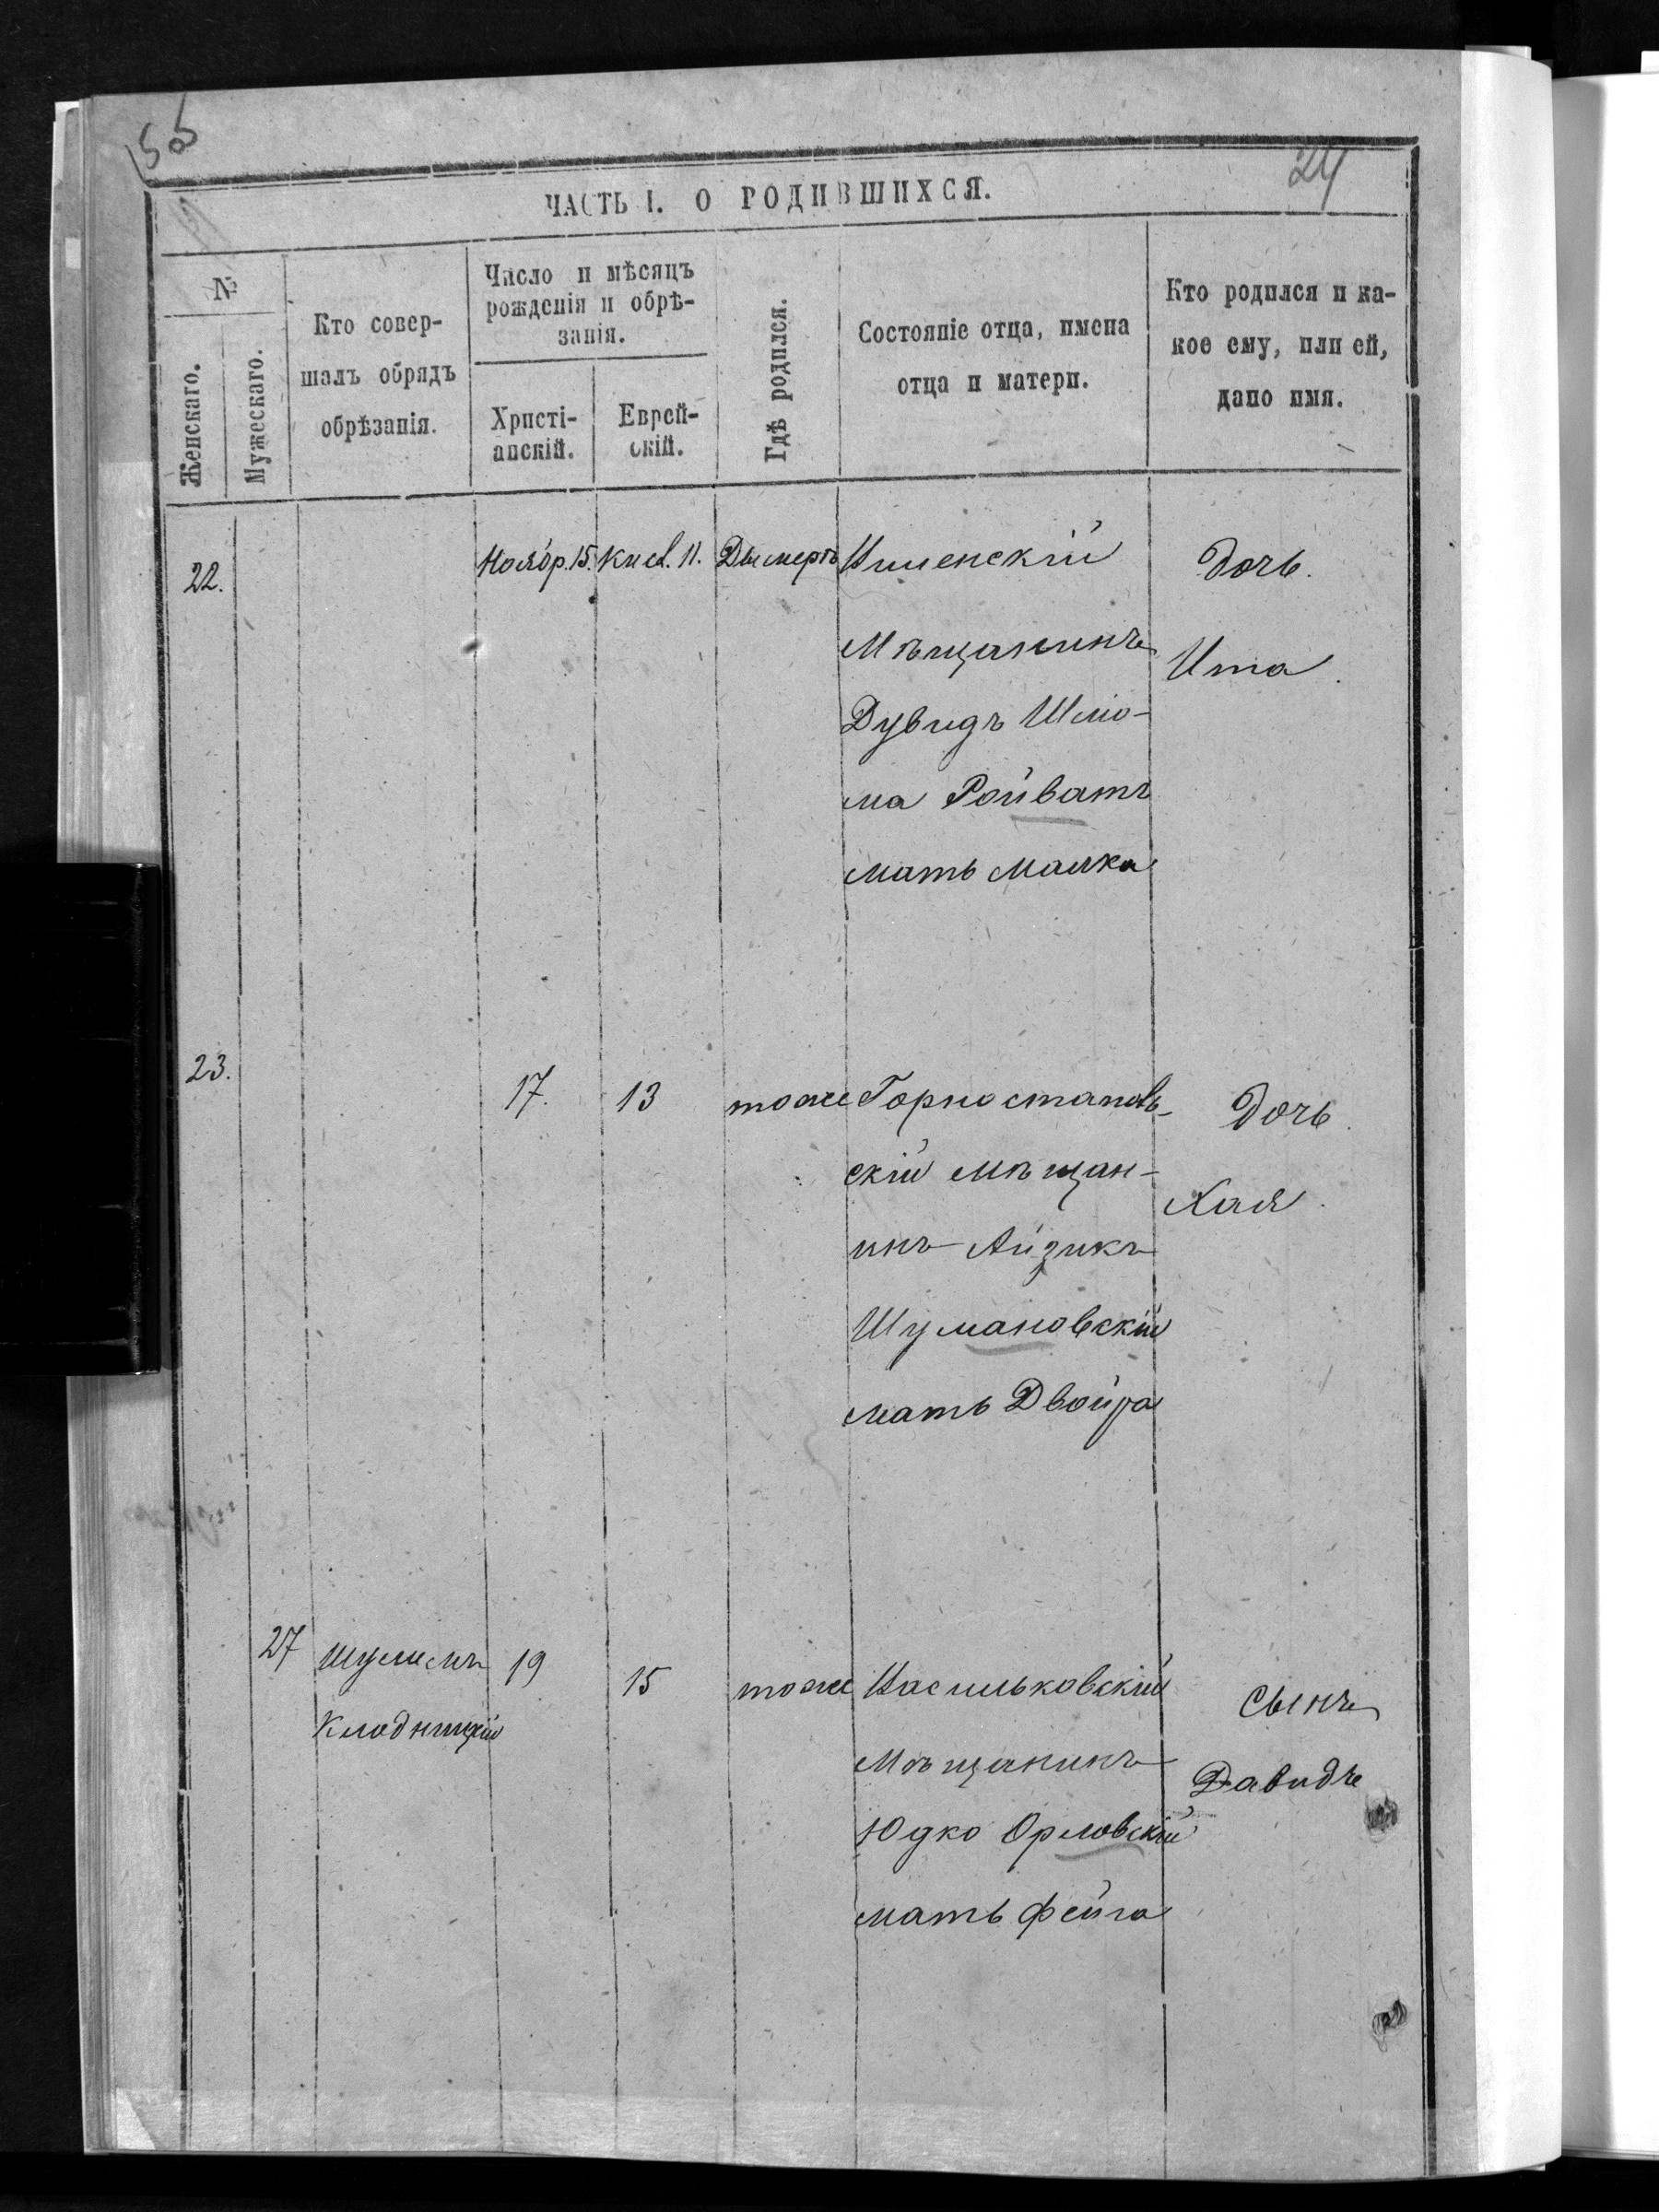 24
ЧАСТЬ I. О РОДИВШИХСЯ.
№
Женскаго.
Мужескаго.
Кто совер-
шалъ обрядъ
обрѣзанія.
Число и мѣсяцъ
рожденія и обрѣ-
занія.
Христі-
анскій.
Еврей-
скій.
Гдѣ родился.
Состояніе отца, имена
отца и матери.
Кто родился и ка-
кое ему, или ей,
дано имя.
22.
Ноябр. 15.
Кисл. 11.
Дымеръ
Мѣщанинъ
Дувидъ Шліо-
ма Ройватъ
мать Малка
Дочь.
Ита.
23.
17.
13
тоже
Горностапов-
скій мѣщан-
инъ Айзикъ
Шумановскій
мать Двойра
Дочь.
Хая.
27
Шулимъ
19
15
тоже
Васильковскій
Мѣщанинъ
Юдко Орловскій
мать Фейга
Сынъ
Давидъ